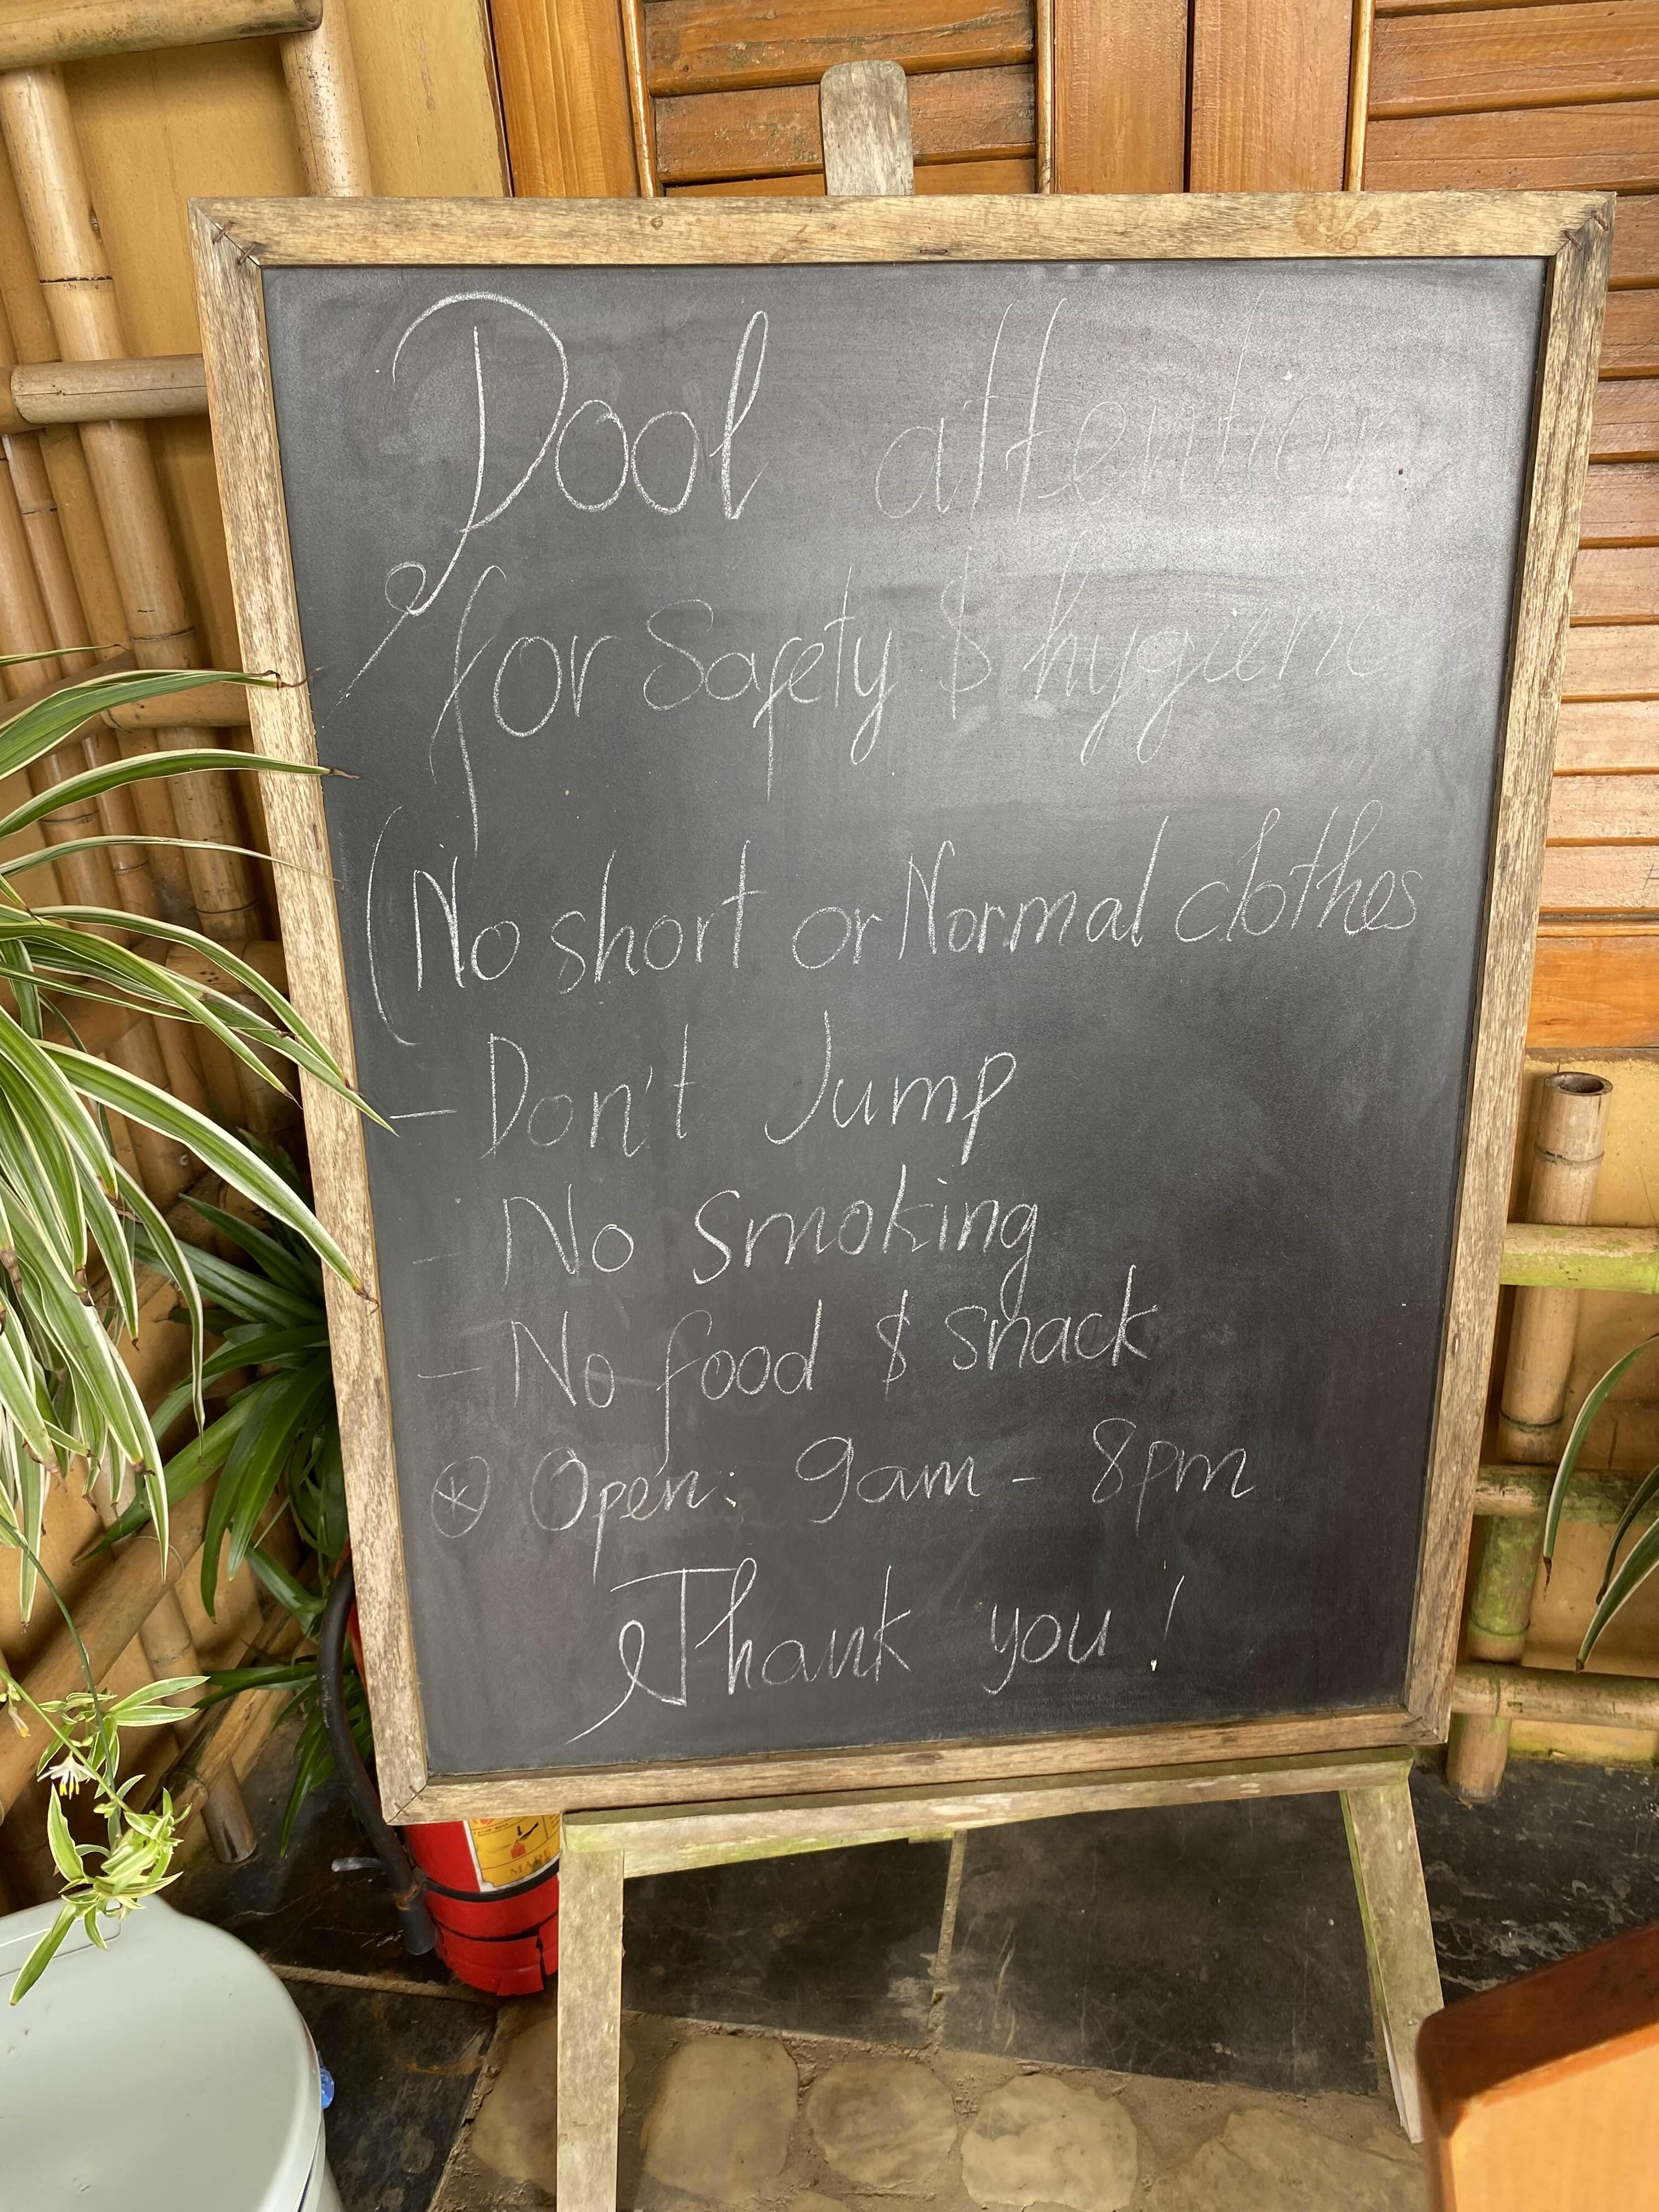 Pool attention
for Safety & hygiene
(No short or Normal clothes
- Don't Jump
- No smoking
- No food & snack
⊛ Open: 9am - 8pm
Thank you!